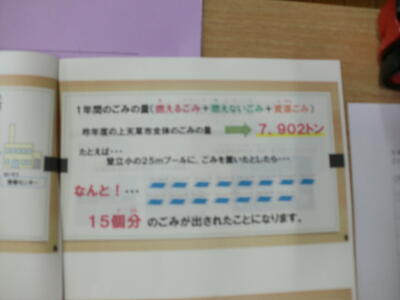 1年間のごみの量(燃えるごみ+燃えないごみ+資源ごみ)
昨年度の上天草市全体のごみの量 7,902トン
たとえば・・・
登立小の25mプールに、ごみを置いたとしたら・・・
なんと!・・・
15個分 のごみが出されたことになります。
センター